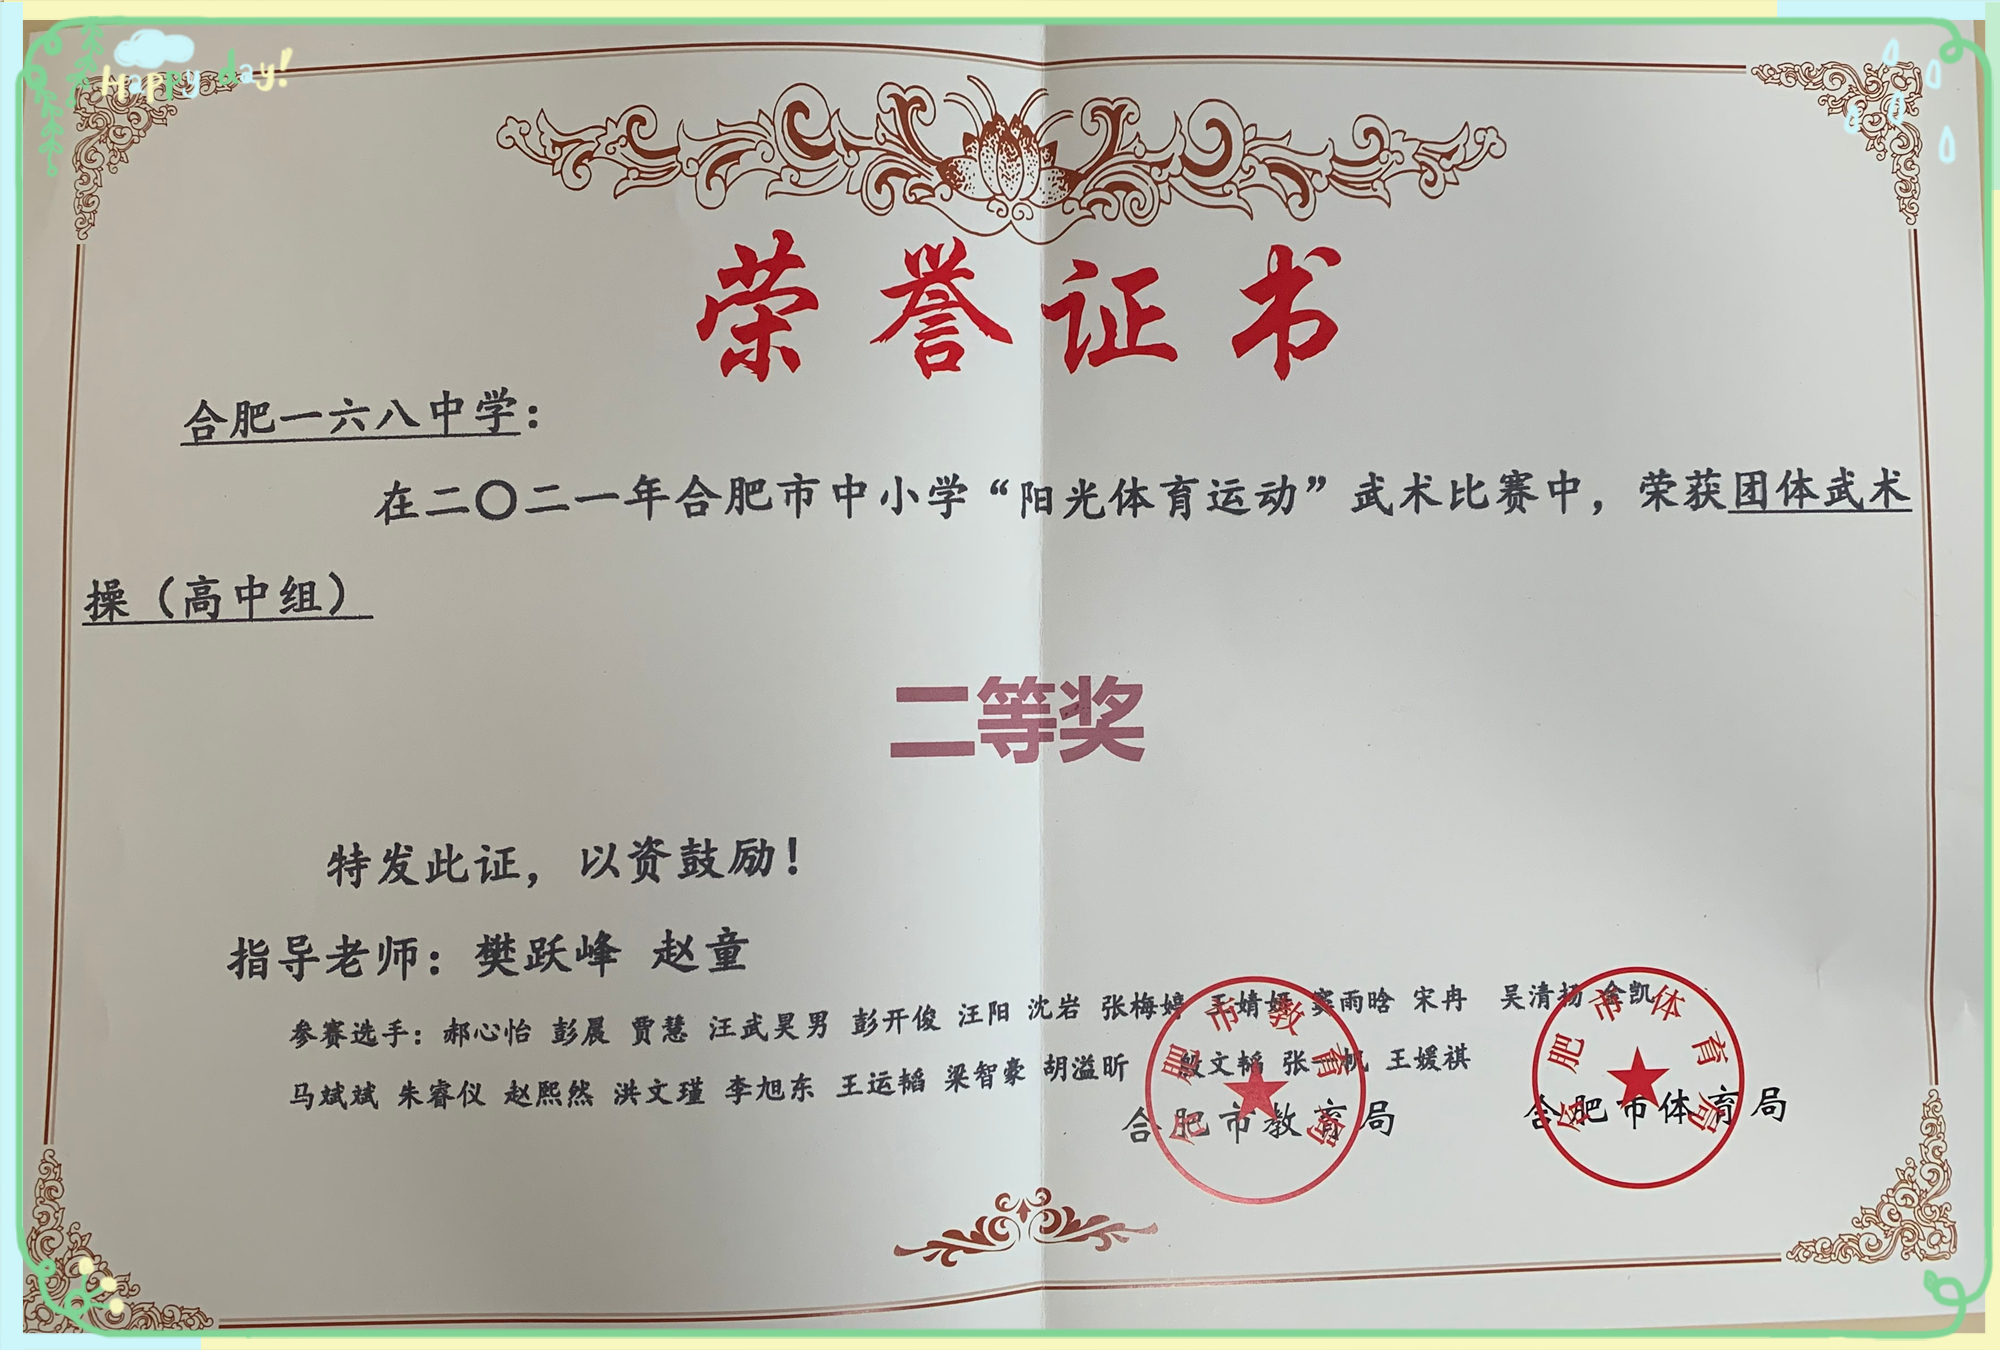 Happy day!
荣誉证书
合肥一六八中学：
在二〇二一年合肥市中小学“阳光体育运动”武术比赛中，荣获团体武术
操（高中组）
二等奖
特发此证，以资鼓励！
指导老师：樊跃峰 赵童
参赛选手：郝心怡 彭晨 贾慧 汪武昊男 彭开俊 汪阳 沈岩 张梅婷 王婧 窦雨晗 宋冉 吴清扬 凯
马斌斌 朱睿仪 赵熙然 洪文瑾 李旭东 王运韬 梁智豪 胡溢昕 殷文韬 张一帆 王媛祺
合肥市教育局 合肥市体育局
合肥市教育局
合肥市体育局